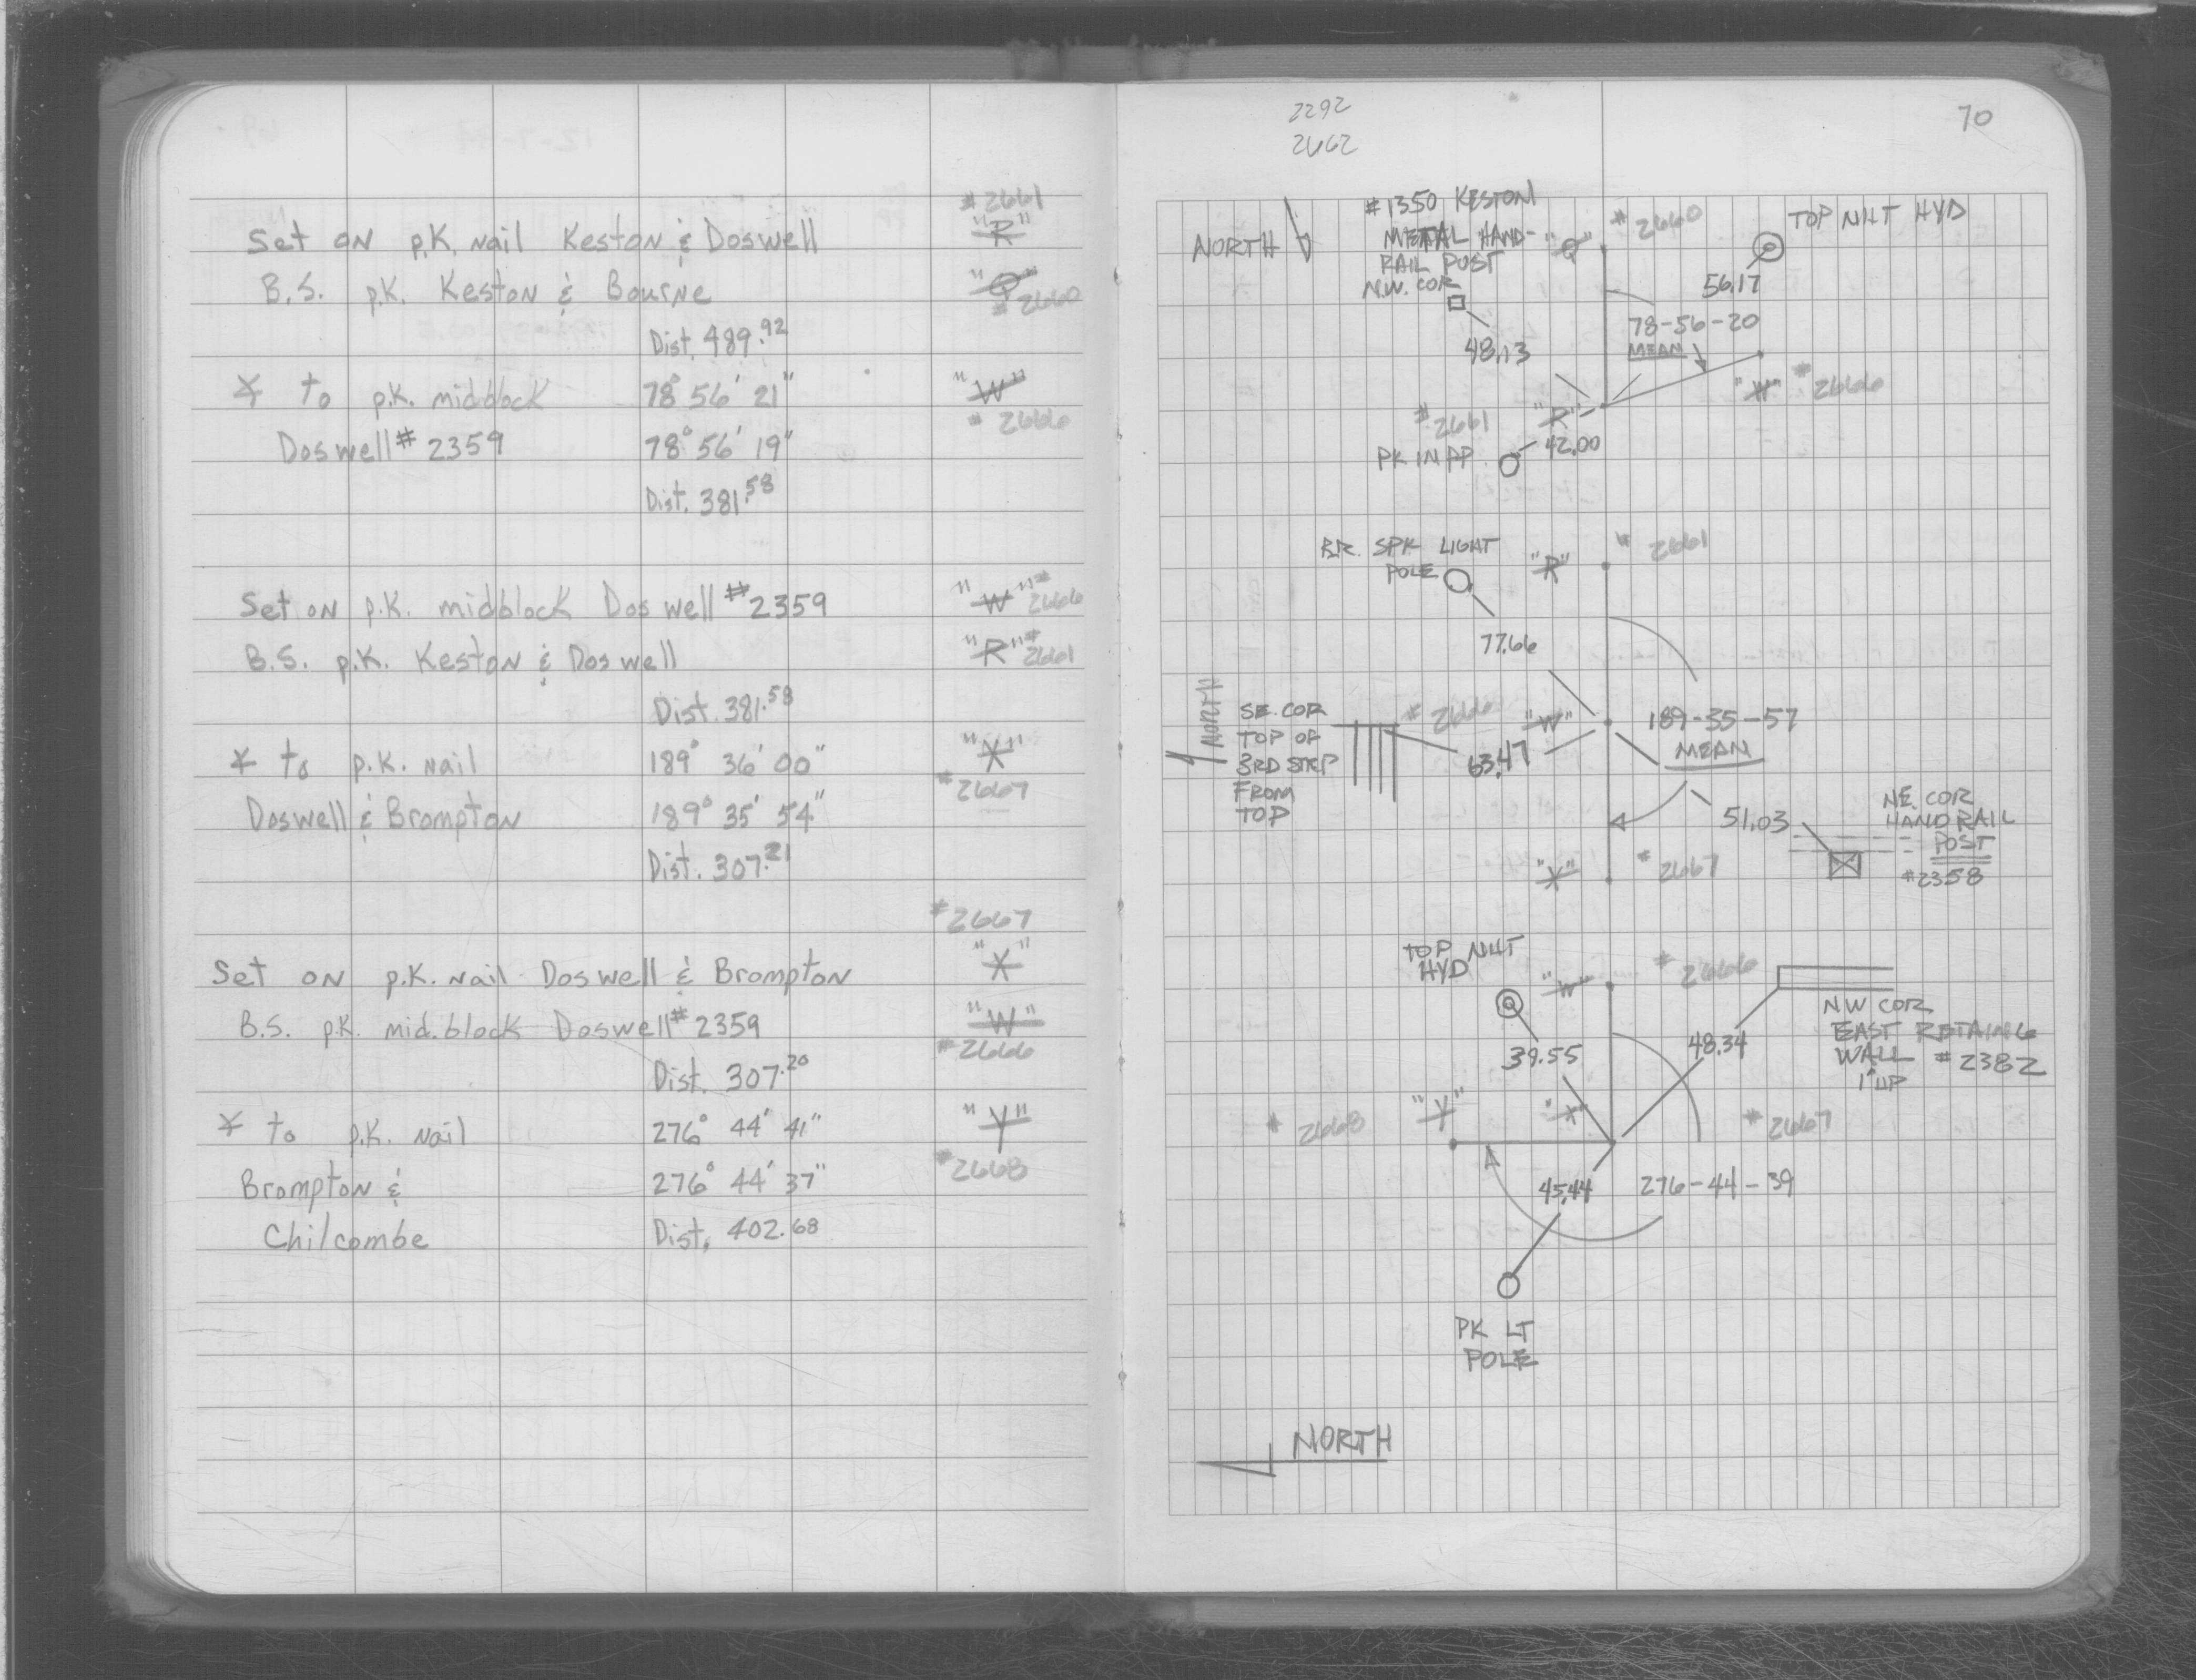 # 2661
Set on p.K. nail Keston & Doswell "R"
B.S. p.K. Keston & Bourne "Q"
# 2660
Dist. 489.92
∡ to p.K. midblock 78° 56' 21" "W"
# 2666
Doswell # 2359 78° 56' 19"
Dist. 381.58
Set on p.K. midblock Doswell # 2359 "W" # 2666
B.S. p.K. Keston & Doswell "R" # 2661
Dist. 381.58
∡ to p.K. nail 189° 36' 00" "X"
# 2667
Doswell & Brompton 189° 35' 54"
Dist. 307.21
# 2667
Set on p.K. nail Doswell & Brompton "X"
B.S. p.K. mid.block Doswell # 2359 "W"
# 2666
Dist. 307.20
∡ to p.K. nail 276° 44' 41" "Y"
# 2668
Brompton & 276° 44' 37"
Chilcombe Dist. 402.68
2292
2662
70
NORTH
#1350 KESTON
METAL HAND-
RAIL POST
N.W. COR
48.13
"Q" # 2660
TOP NUT HYD
56.17
78-56-20
MEAN
"W" # 2666
# 2661 "R"
PK IN PP 42.00
BR. SPK LIGHT
POLE
"R" # 2661
77.66
NORTH
SE. COR
TOP OF
3RD STEP
FROM
TOP
# 2666 "W"
63.47
189-35-57
MEAN
51.03
NE. COR
HANDRAIL
POST
#2358
"X" # 2667
TOP NUT
HYD
"W" # 2666
39.55
48.34
NW COR
EAST RETAING
WALL # 2382
1' UP
# 2668 "Y" "X" # 2667
45.44 276-44-39
PK LT
POLE
NORTH